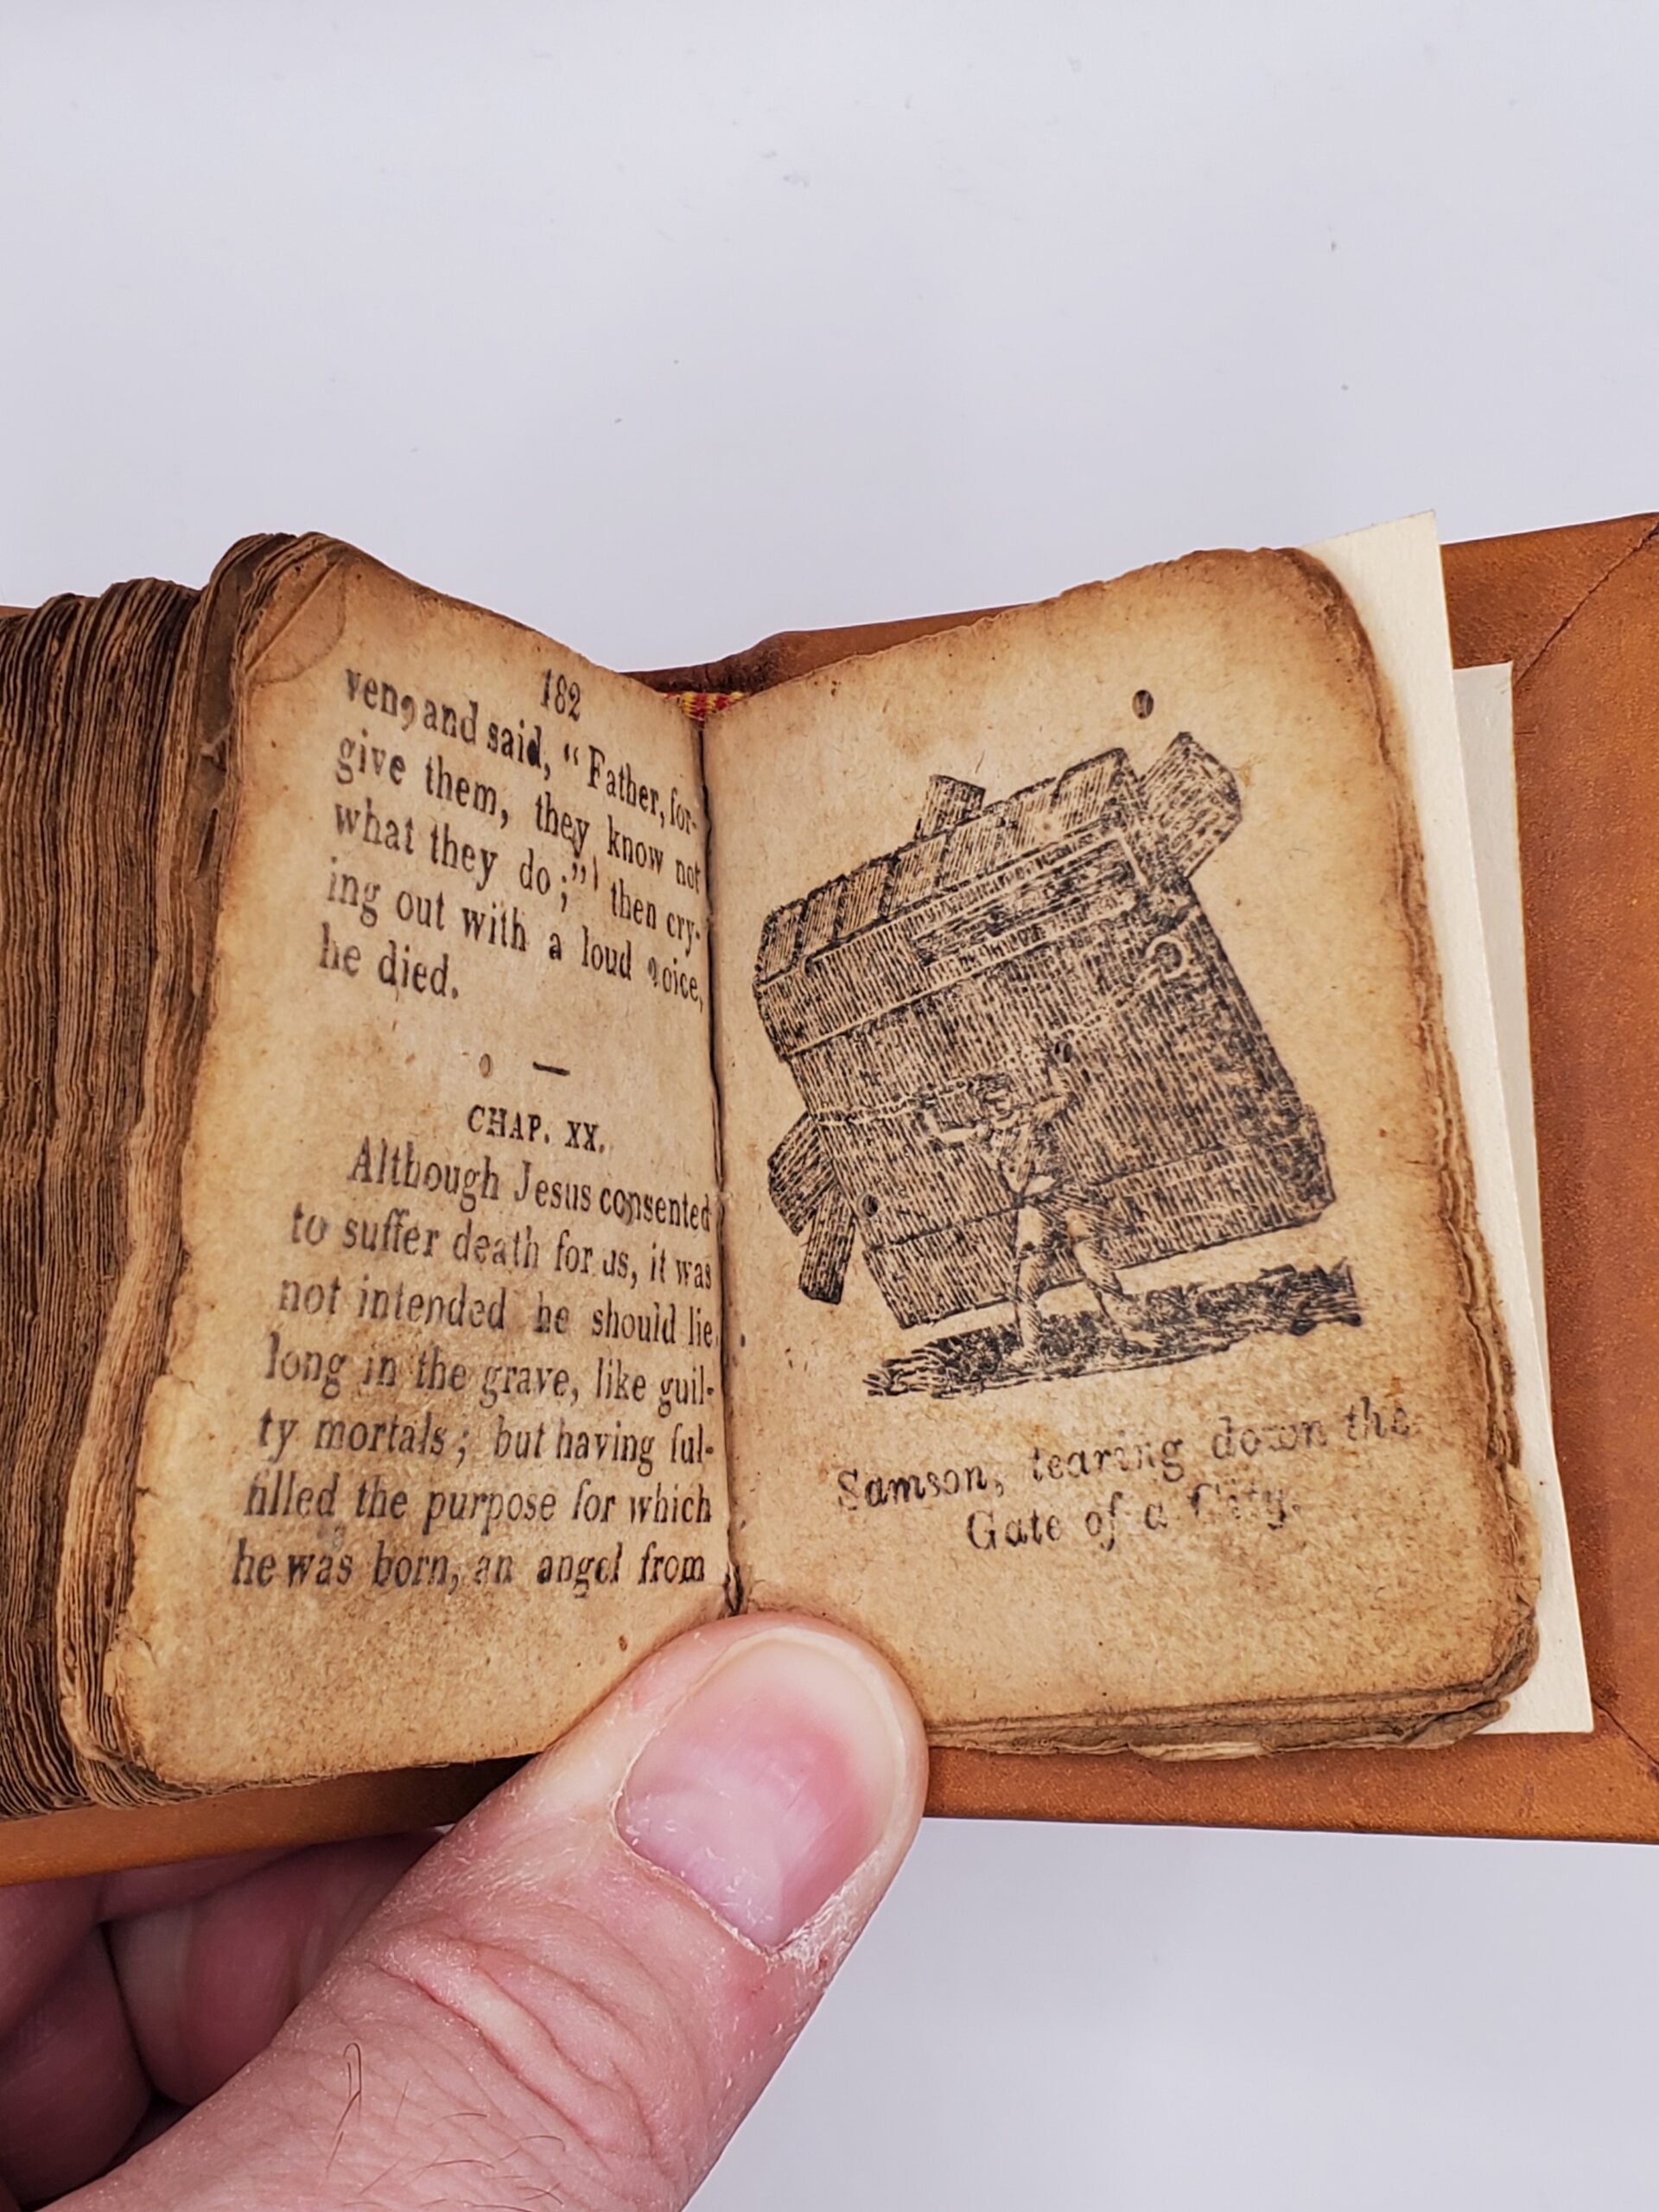 182
ven, and said, "Father, for-
give them, they know not
what they do;" then cry-
ing out with a loud voice,
he died.
CHAP. XX.
Although Jesus consented
to suffer death for us, it was
not intended he should lie
long in the grave, like guil-
ty mortals; but having ful-
filled the purpose for which
he was born, an angel from
Samson, tearing down the
Gate of a City.